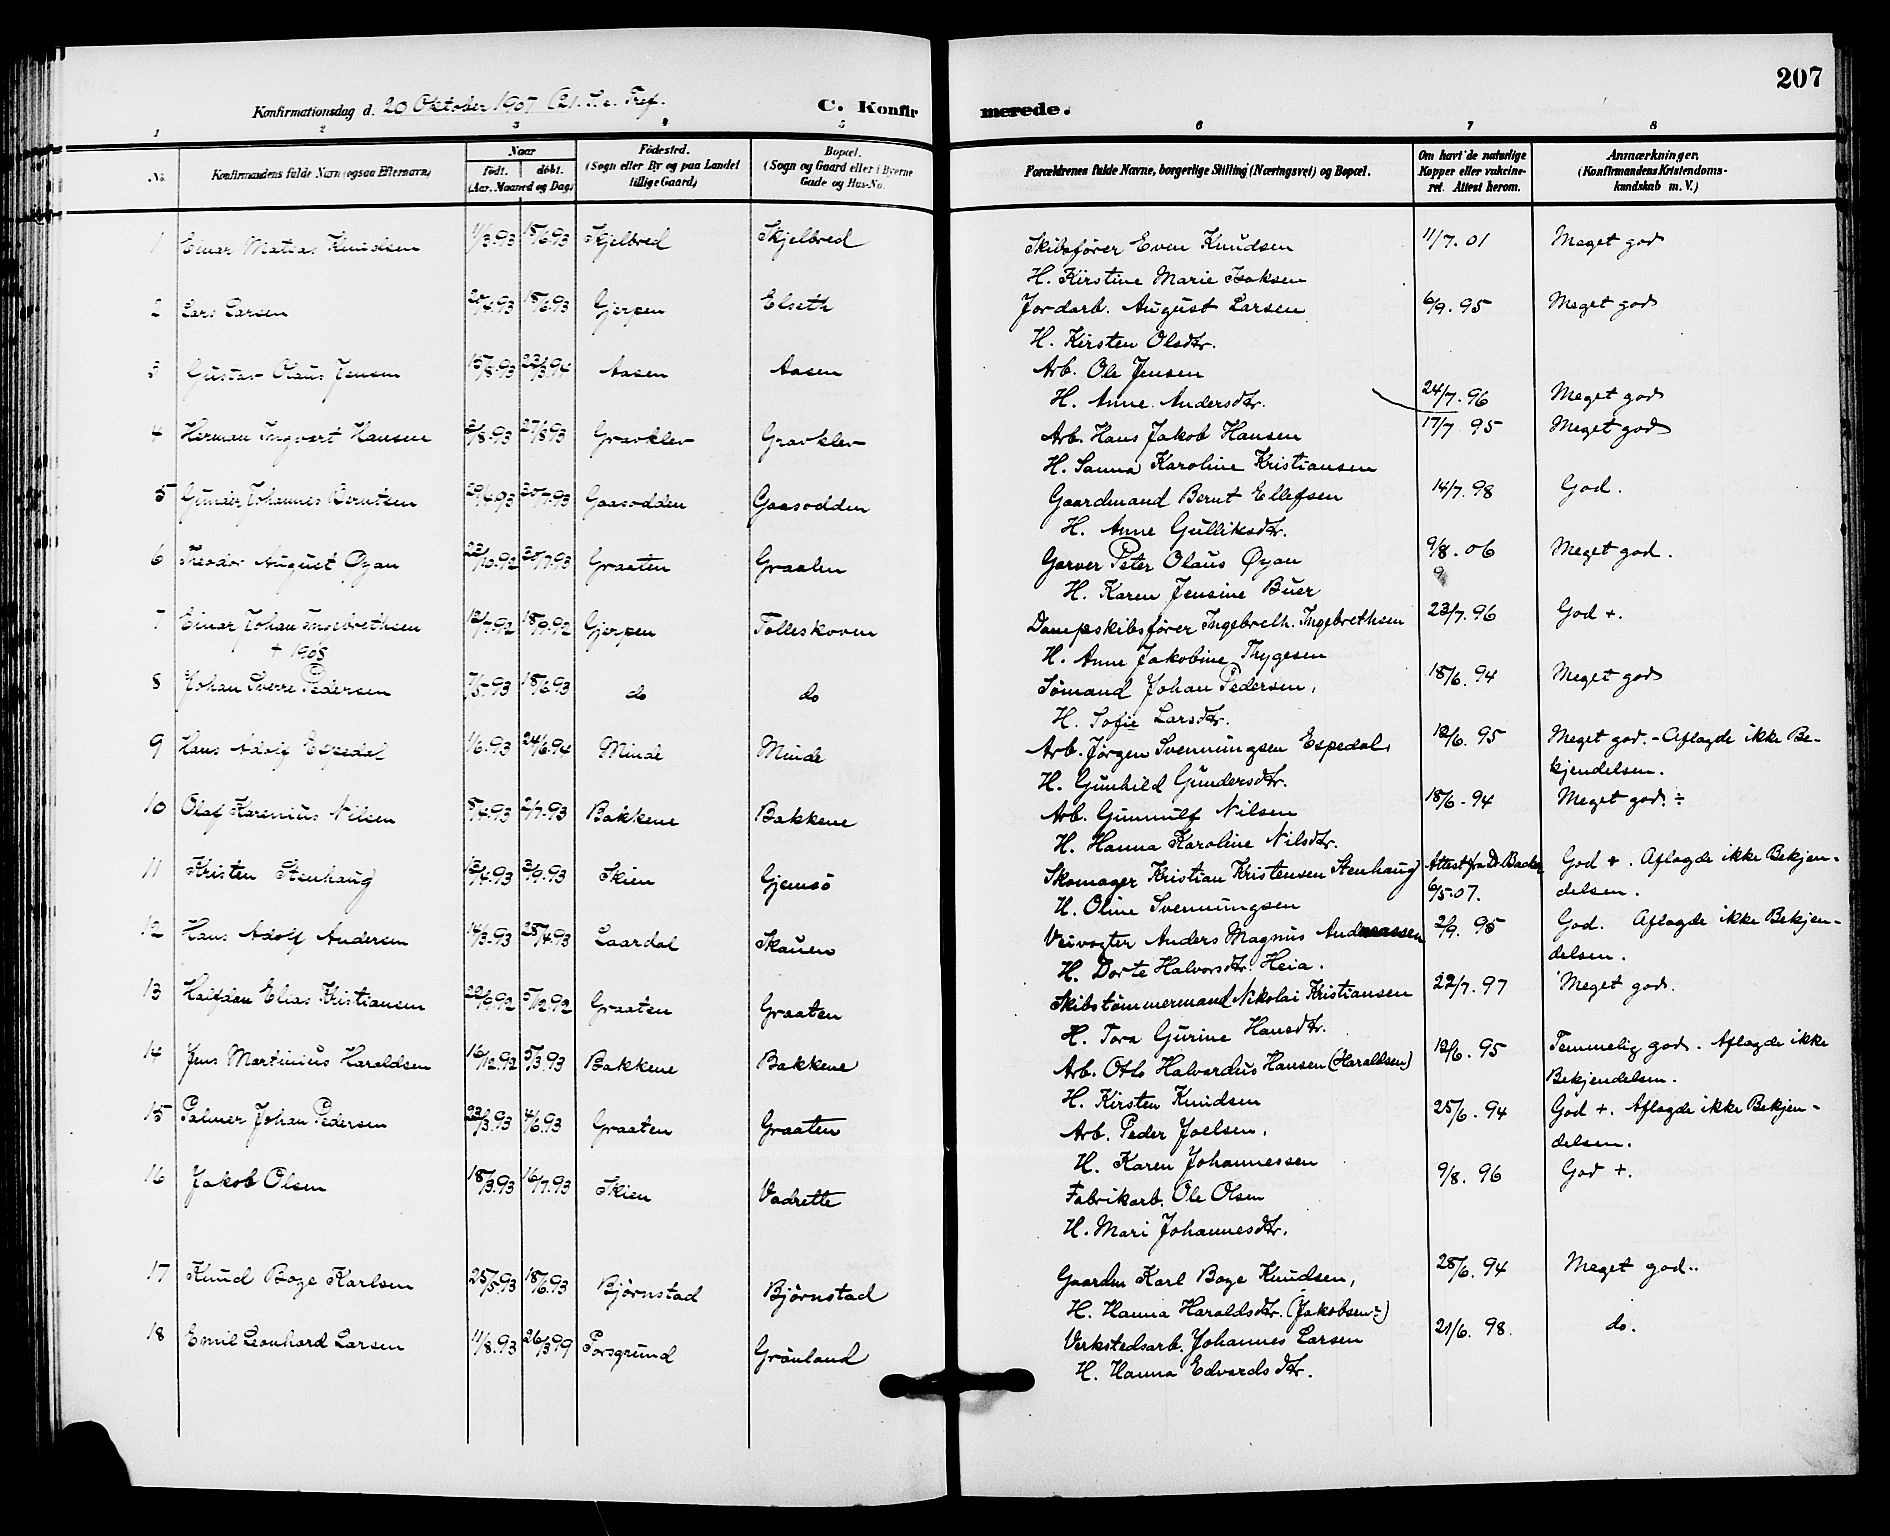 207
Konfirmationsdag d. 20 Oktober 1907 C. Konfirmerede.
1 2 3 4 5 6 7 8
No. Konfirmandens fulde Navn (ogsaa Efternavn) Naar født. døbt. (Aar, Maaned og Dag) Fødested. (Sogn eller By og paa Landet tillige Gaard) Bopæl. (Sogn og Gaard eller i Byerne Gade og Hus-No. Forældrenes fulde Navne, borgerlige Stilling (Næringsvei) og Bopæl. Om havt de naturlige Kopper eller vakcineret. Attest herom. Anmærkninger. (Konfirmandens Kristendomskundskab m. V.)
1 Einar Matias Knudsen 11/3.93 18/6.93 Skjelbred Skjelbred Skibsfører Even Knudsen 11/7.01 Meget god
H. Kirstine Marie Isaksen
2 Lars Larsen 20/4.93 18/6.93 Gjerpen Elseth Jordarb. August Larsen 6/9.95 Meget god
H. Kirsten Olsdtr.
3 Gustav Olaus Jensen 15/8.93 23/3.94 Aasen Aasen Arb. Ole Jensen
H. Anne Andersdtr. 24/7.96 Meget god
4 Herman Ingvart Hansen 3/8.93 27/8.93 Gravklev Gravklev Arb. Hans Jakob Hansen 17/7 95 Meget god
H. Sanna Karoline Kristiansen
5 Gunder Johannes Berntsen 29/4.93 30/7.93 Gaasodden Gaasodden Gaardmand Bernt Ellefsen 14/7.98 God.
H. Anne Gulliksdtr.
6 Theodor August Øyan 23/10.92 30/7.93 Graaten Graaten Garver Peter Olaus Øyan 9/8.06 Meget god.
H. Karen Jensine Buer
7 Einar Johan Ingebrethsen 12/7.92 18/9.92 Gjerpen Tolleskoven Dampskibsfører Ingebreth. Ingebrethsen 23/7.96 God +.
+ 1908 H. Anne Jakobine Thygesen
8 Johan Sverre Pedersen 7/5.93 18/6.93 do do Sømand Johan Pedersen, 18/6.94 Meget god
H. Sofie Larsdtr.
9 Hans Adolf Espedal 1/6.93 24/6.94 Minde Minde Arb. Jørgen Svenningsen Espedal, 12/6.95 Meget god. - Aflagde ikke Be-
H. Gunhild Gundersdtr. kjendelsen.
10 Olaf Karenius Nilsen 8/4.93 2/7.93 Bakkene Bakkene Arb. Gunnulf Nilsen 18/6.94 Meget god. ÷
H. Hanna Karoline Nilsdtr.
11 Kristen Stenhaug 13/4.93 3/9.93 Skien Gjemsø Skomager Kristian Kristensen Stenhaug Attest fra Dr. Backer God +. Aflagde ikke Bekjen-
H. Oline Svennungsen 6/5.07. delsen.
12 Hans Adolf Andersen 14/3.93 28/4.93 Laardal Skauen Veivogter Anders Magnus Andreassen 2/9.95 God. Aflagde ikke Bekjen-
H. Dorte Halvorsdtr. Heia. delsen.
13 Halfdan Elias Kristiansen 22/9.92 5/12.92 Graaten Graaten Skibstømmermand Nikolai Kristiansen 22/7.97 Meget god.
H. Tora Gurine Hansdtr.
14 Jens Martinius Haraldsen 16/12.92 5/3.93 Bakkene Bakkene Arb. Otto Halvardus Hansen (Haraldsen) 12/6.95 Temmelig god. Aflagde ikke
H. Kirsten Knudsen Bekjendelsen.
15 Palmer Johan Pedersen 23/3.93 4/6.93 Graaten Graaten Arb. Peder Joelsen. 25/6.94 God +. Aflagde ikke Bekjen-
H. Karen Johannessen delsen.
16 Jakob Olsen 18/3.93 16/7.93 Skien Vadrette Fabrikarb. Ole Olsen 9/8.96 God +.
H. Mari Johannesdtr.
17 Knud Boye Karlsen 25/5.93 18/6.93 Bjørnstad Bjørnstad Gaardm Karl Boye Knudsen, 28/6.94 Meget god.
H. Hanna Haraldsdtr. (Jakobsen)
18 Emil Leonhard Larsen 11/8.93 26/3.99 Porsgrund Grønland Verkstedsarb. Johannes Larsen 21/6.98. do.
H. Hanna Edvardsdtr.